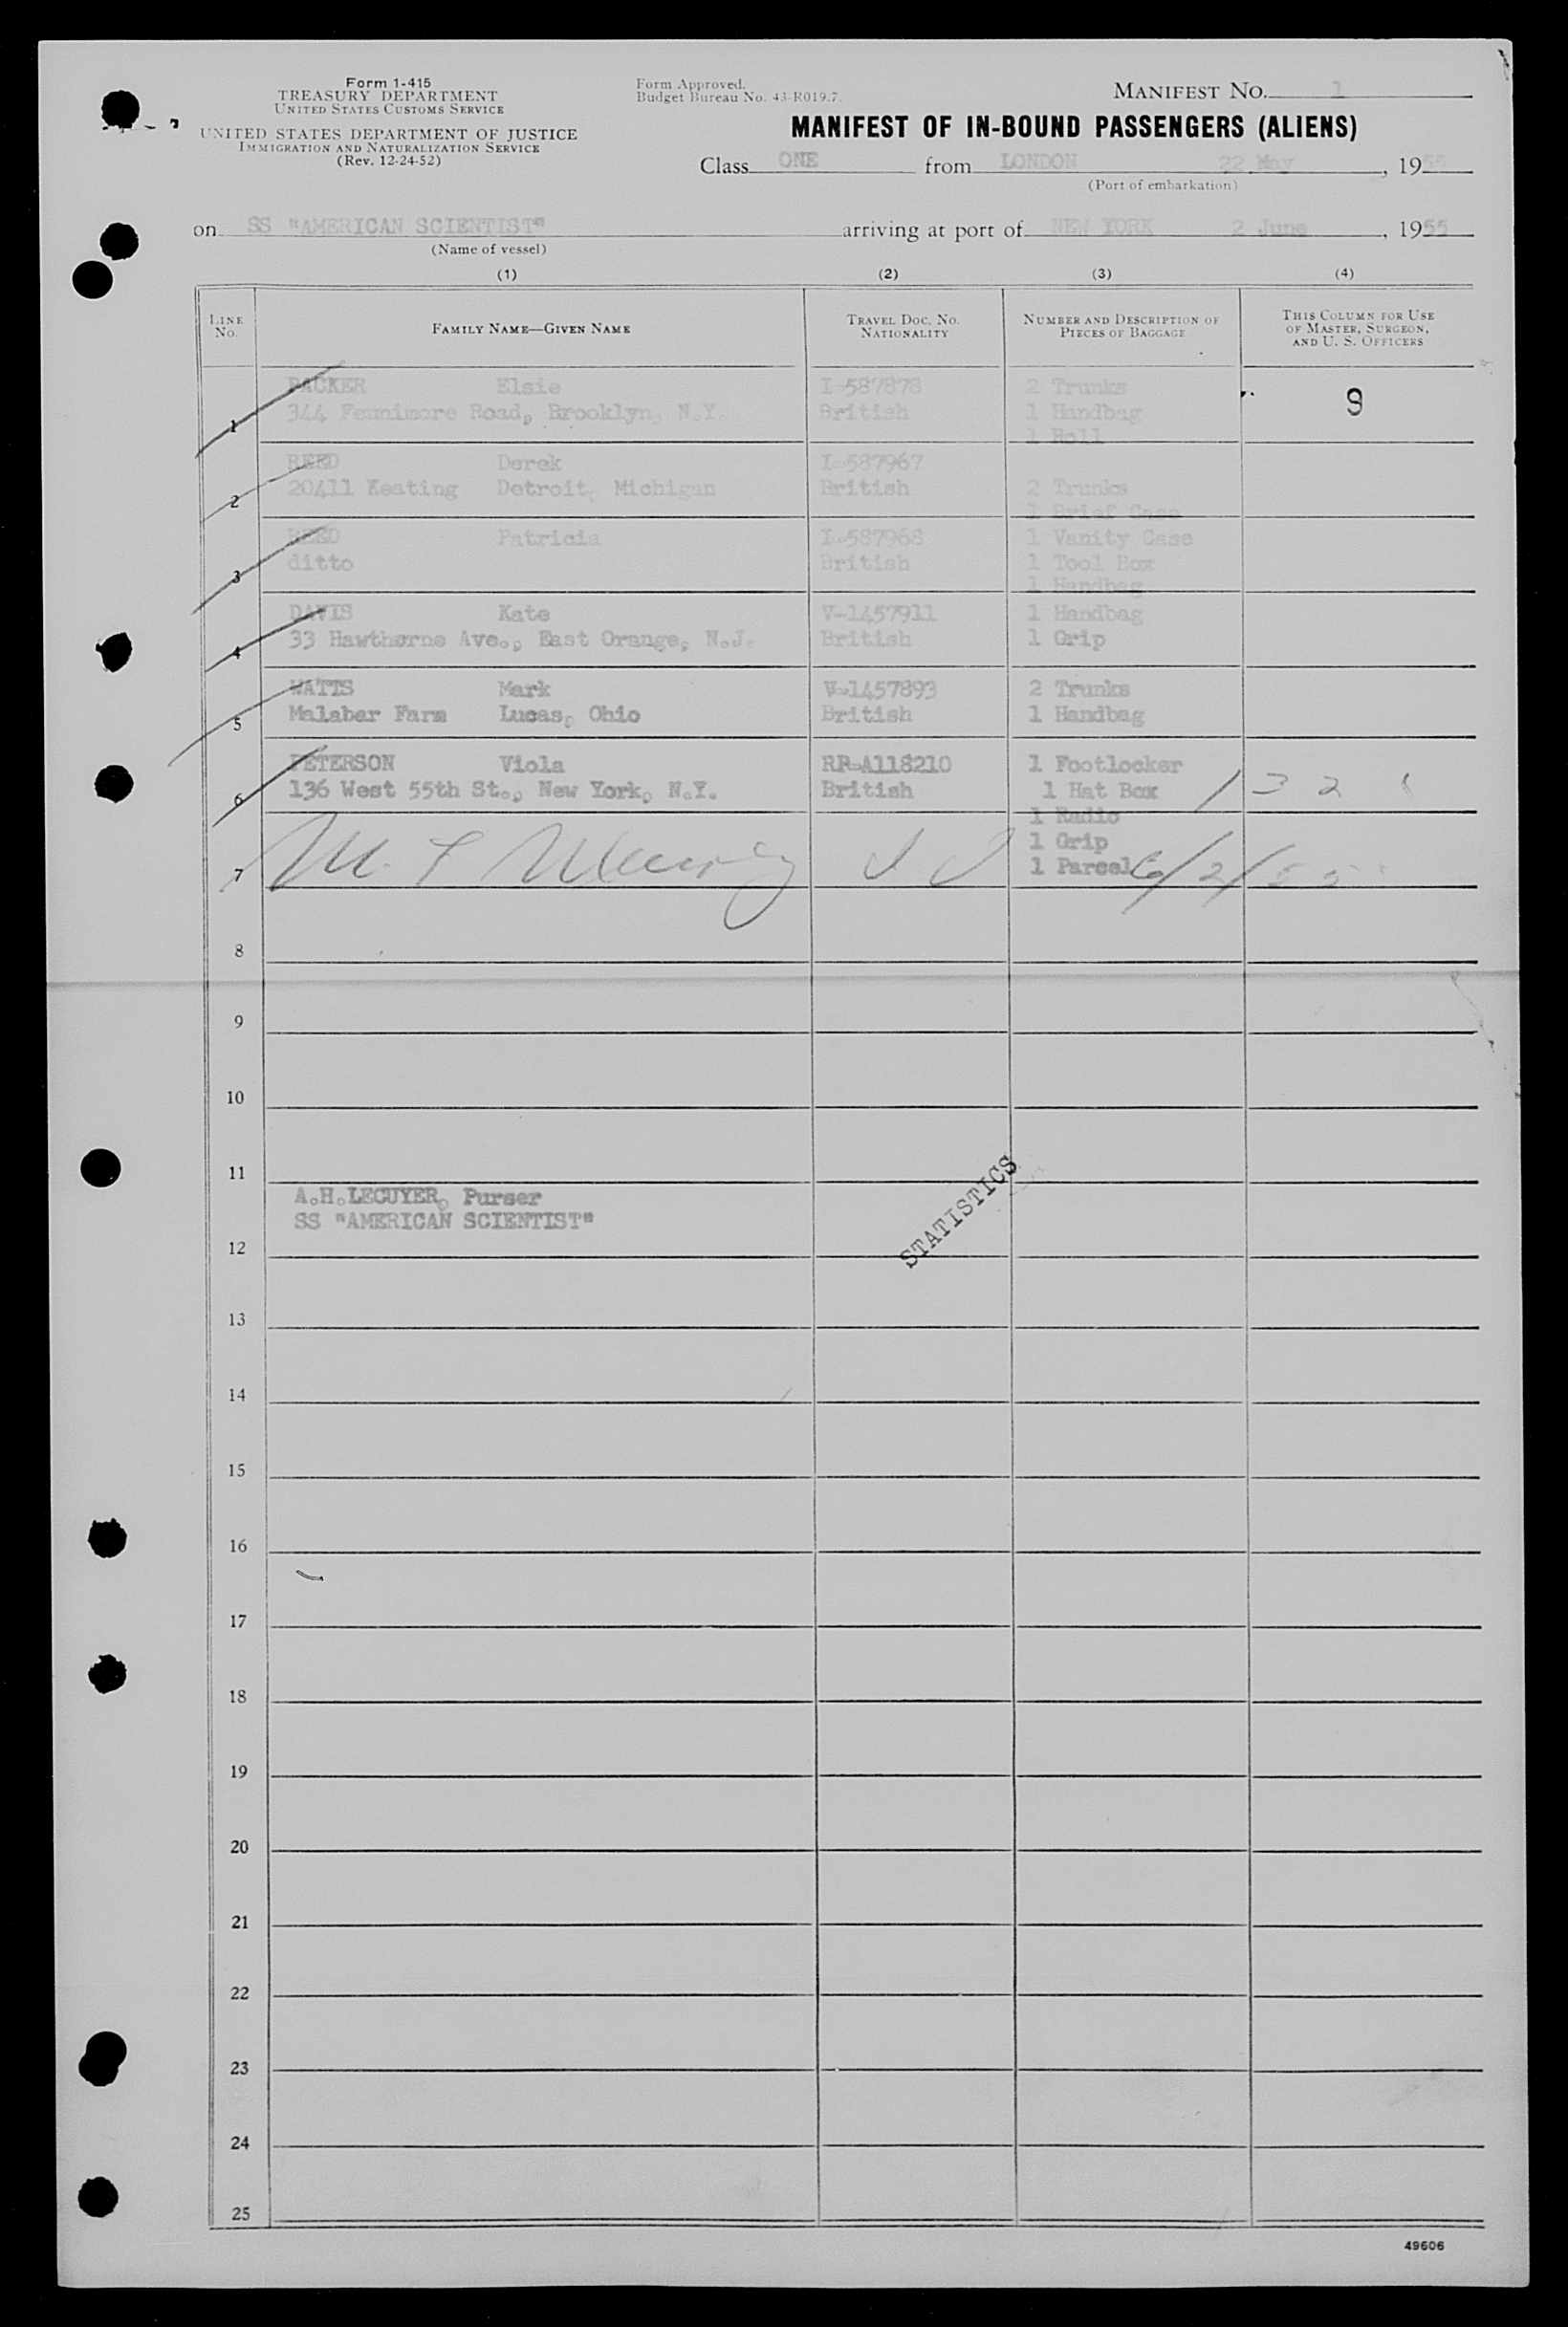 Form 1-415
TREASURY DEPARTMENT
UNITED STATES CUSTOMS SERVICE
UNITED STATES DEPARTMENT OF JUSTICE
IMMIGRATION AND NATURALIZATION SERVICE
(Rev. 12-24-52)
Form Approved.
Budget Bureau No. 43-R019.7.
MANIFEST NO. 1
MANIFEST OF IN-BOUND PASSENGERS (ALIENS)
Class ONE from LONDON 22 May, 1955
(Port of embarkation)
on SS "AMERICAN SCIENTIST" arriving at port of NEW YORK 2 June, 1955
(Name of vessel)
(1) (2) (3) (4)
LINE NO.
FAMILY NAME—GIVEN NAME
TRAVEL DOC. NO.
NATIONALITY
NUMBER AND DESCRIPTION OF
PIECES OF BAGGAGE
THIS COLUMN FOR USE
OF MASTER, SURGEON,
AND U. S. OFFICERS
1 PACKER Elsie I-587878 2 Trunks
344 Fennimore Road, Brooklyn, N.Y. British 1 Handbag 9
1 Roll
2 REED Derek I-587967
20411 Keating Detroit, Michigan British 2 Trunks
1 Brief Case
3 REED Patricia I-587968 1 Vanity Case
ditto British 1 Tool Box
1 Handbag
4 DAVIS Kate V-1457911 1 Handbag
33 Hawthorne Ave., East Orange, N.J. British 1 Grip
5 WATTS Mark V-1457893 2 Trunks
Malabar Farm Lucas, Ohio British 1 Handbag
6 PETERSON Viola RP-A118210 1 Footlocker
136 West 55th St., New York, N.Y. British 1 Hat Box
1 Radio
7 1 Grip
1 Parcel 6/2/55
8
9
10
11
A.H.LECUYER, Purser
SS "AMERICAN SCIENTIST"
STATISTICS
12
13
14
15
16
17
18
19
20
21
22
23
24
25
49606